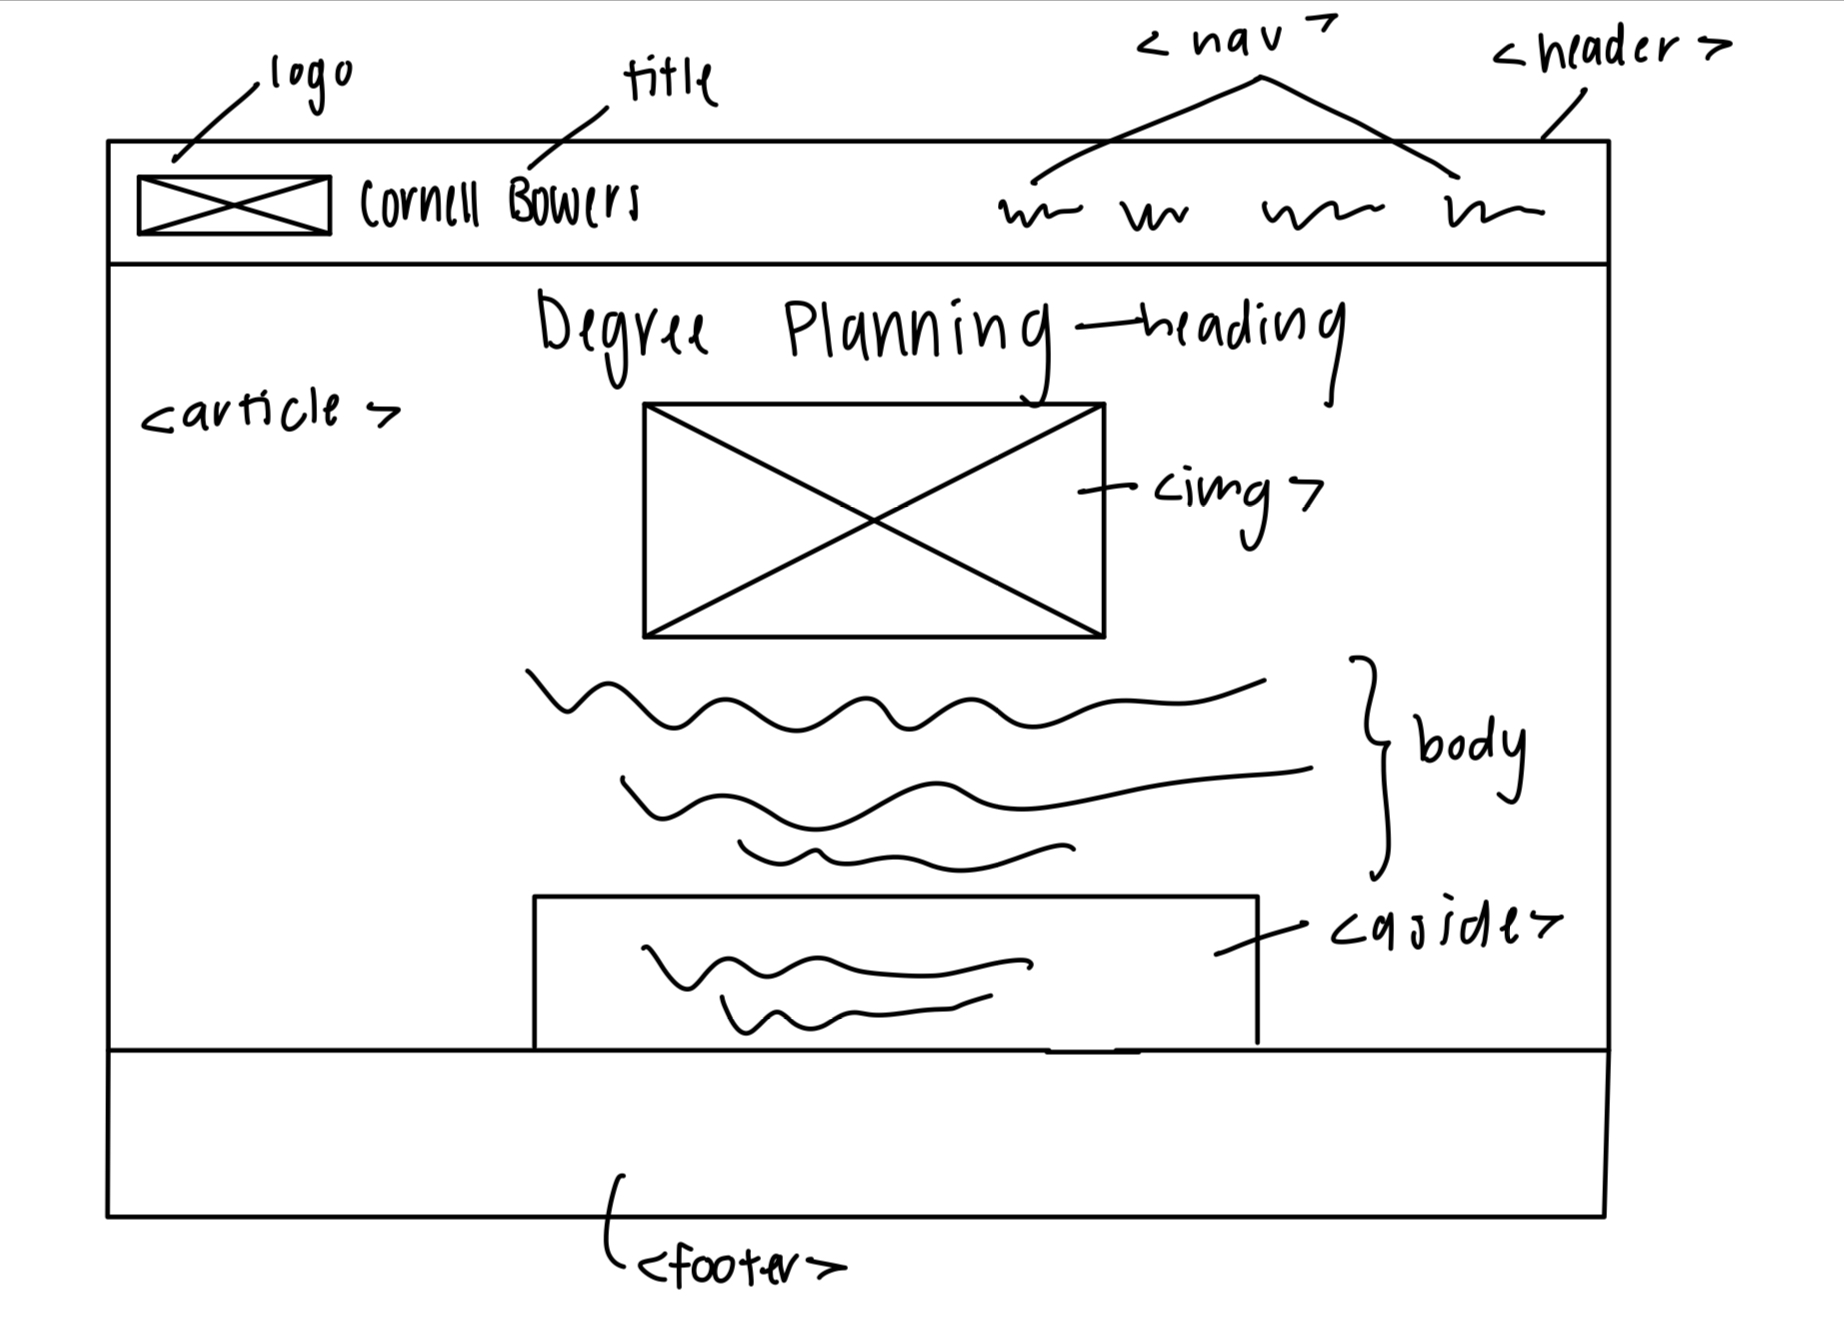 logo
title
<nav>
<header>
Cornell Bowers
Degree Planning
heading
<article>
<img>
body
<aside>
<footer>